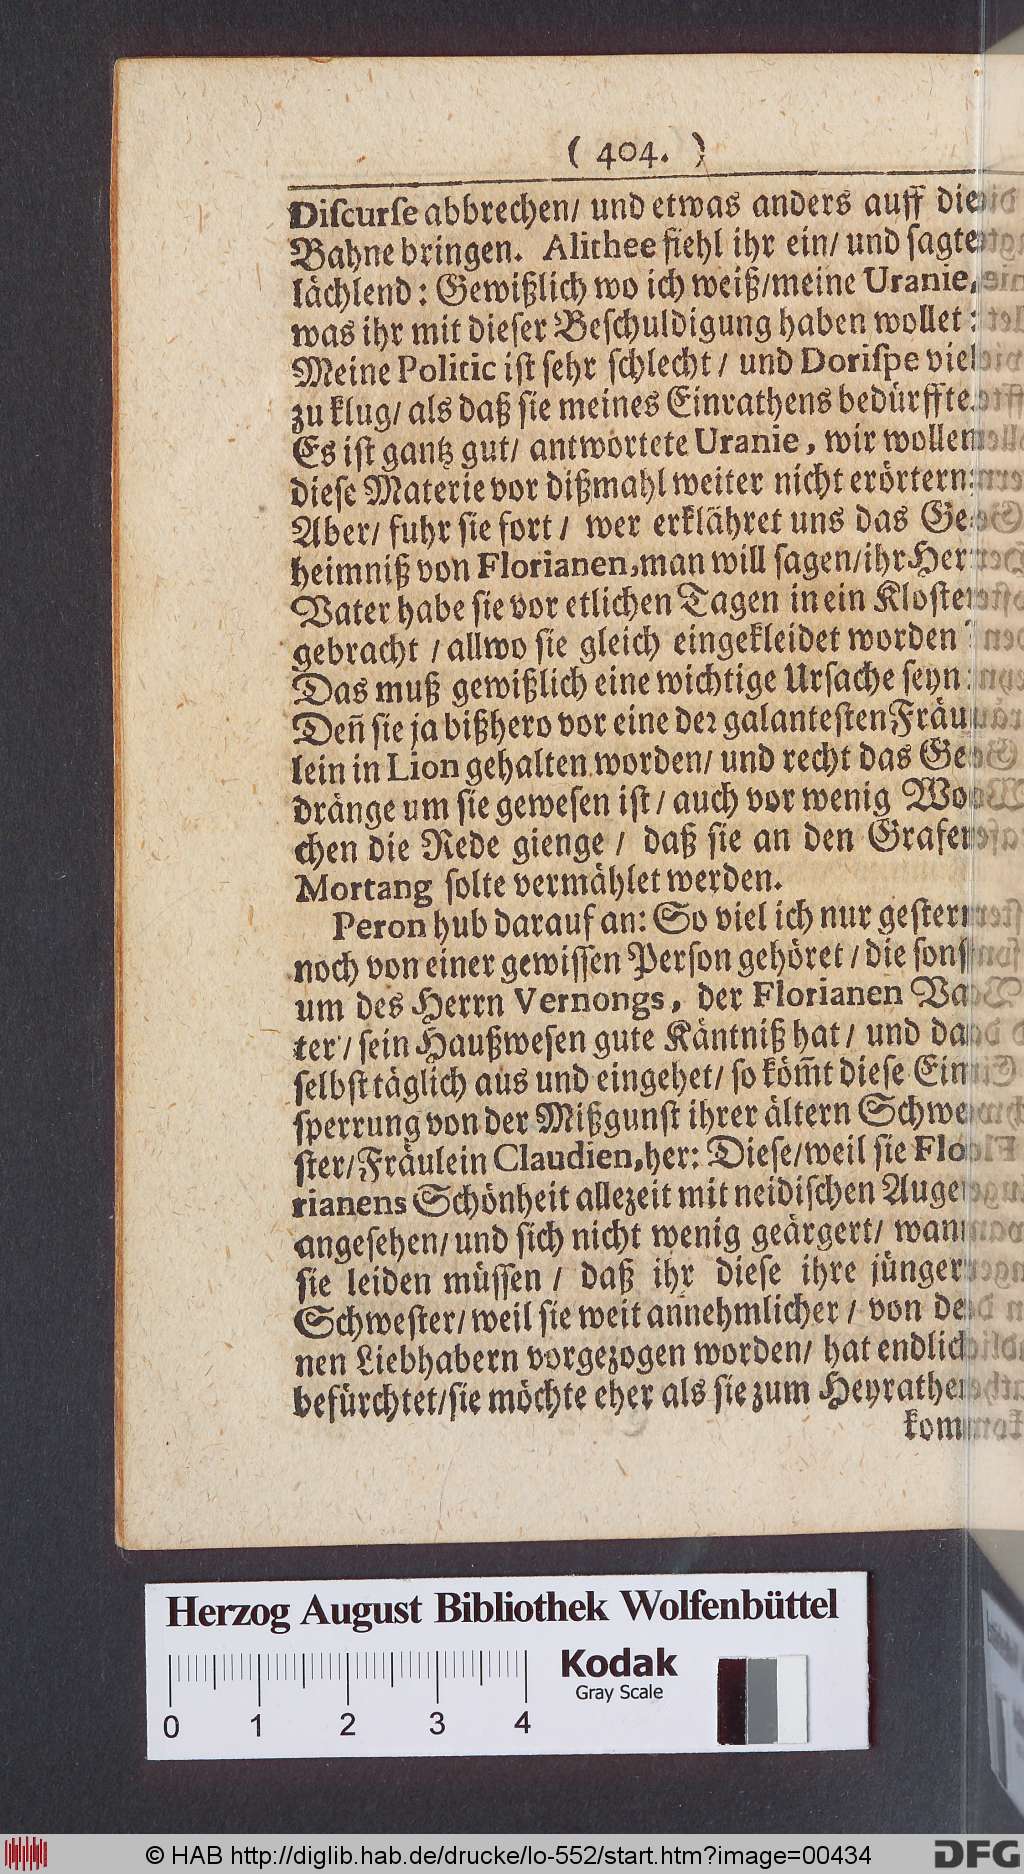 ( 404. )
Discurse abbrechen/ und etwas anders auff die
Bahne bringen. Alithee fiehl ihr ein/ und sagte
lächlend: Gewißlich wo ich weiß/meine Uranie,
was ihr mit dieser Beschuldigung haben wollet:
Meine Politic ist sehr schlecht/ und Dorispe viel
zu klug/ als daß sie meines Einrathens bedürffte.
Es ist gantz gut/ antwortete Uranie, wir wollen
diese Materie vor dißmahl weiter nicht erörtern:
Aber/ fuhr sie fort/ wer erklähret uns das Ge-
heimniß von Florianen, man will sagen/ihr Herr
Vater habe sie vor etlichen Tagen in ein Kloster
gebracht /allwo sie gleich eingekleidet worden
Das muß gewißlich eine wichtige Ursache seyn:
Deñ sie ja bißhero vor eine der galantesten Fräu-
lein in Lion gehalten worden/ und recht das Ge-
dränge um sie gewesen ist/ auch vor wenig Wo-
chen die Rede gienge / daß sie an den Grafen
Mortang solte vermählet werden.
Peron hub darauf an: So viel ich nur gestern
noch von einer gewissen Person gehöret/ die sonst
um des Herrn Vernongs, der Florianen Va-
ter / sein Haußwesen gute Käntniß hat/ und da
selbst täglich aus und eingehet/ so köm̃t diese Ein-
sperrung von der Mißgunst ihrer ältern Schwe-
ster/ Fräulein Claudien, her: Diese/weil sie Flo-
rianens Schönheit allezeit mit neidischen Augen
angesehen/ und sich nicht wenig geärgert/ wann
sie leiden müssen / daß ihr diese ihre jünger
Schwester/ weil sie weit annehmlicher / von de-
nen Liebhabern vorgezogen worden/ hat endlich
befürchtet/sie möchte eher als sie zum Heyrathen
kom-
Herzog August Bibliothek Wolfenbüttel
Kodak
Gray Scale
0 1 2 3 4
© HAB http://diglib.hab.de/drucke/lo-552/start.htm?image=00434
DFG